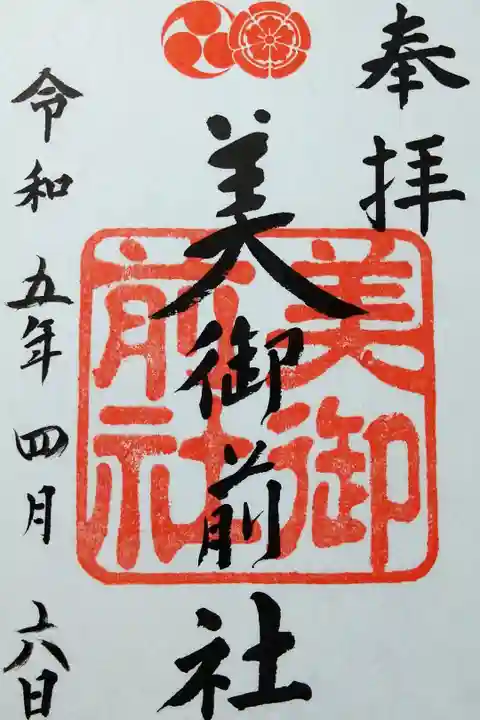 奉拝
美御前社
令和五年四月六日
美御
前社